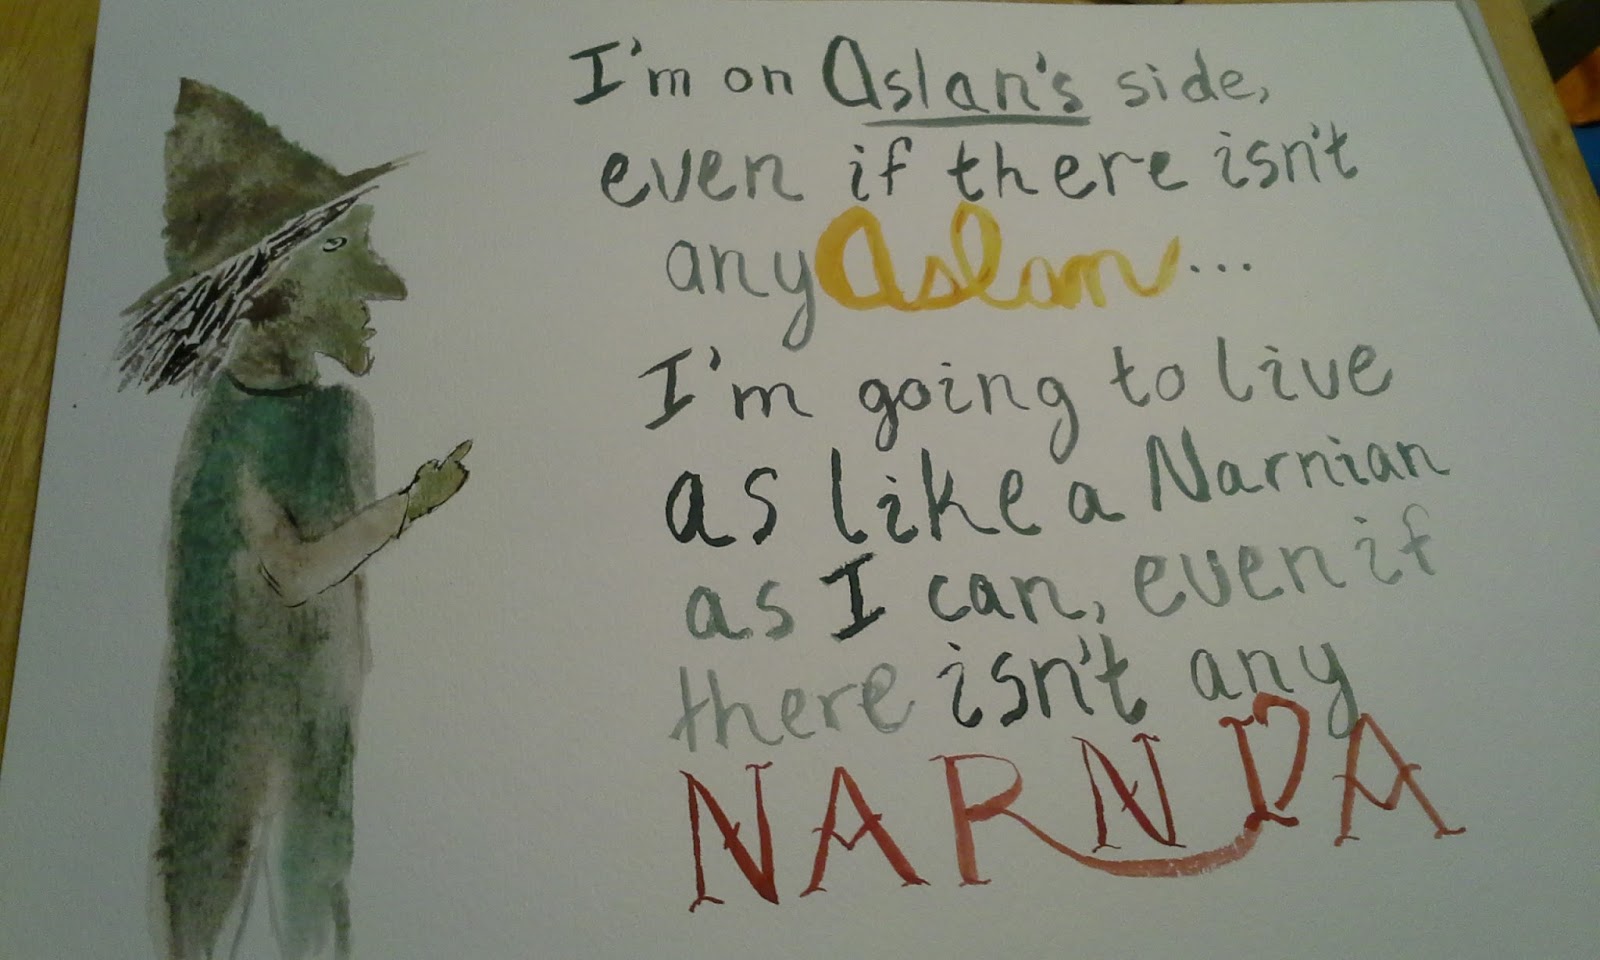 I'm on Aslan's side,
even if there isn't
any Aslan...
I'm going to live
as like a Narnian
as I can, even if
there isn't any
NARNIA